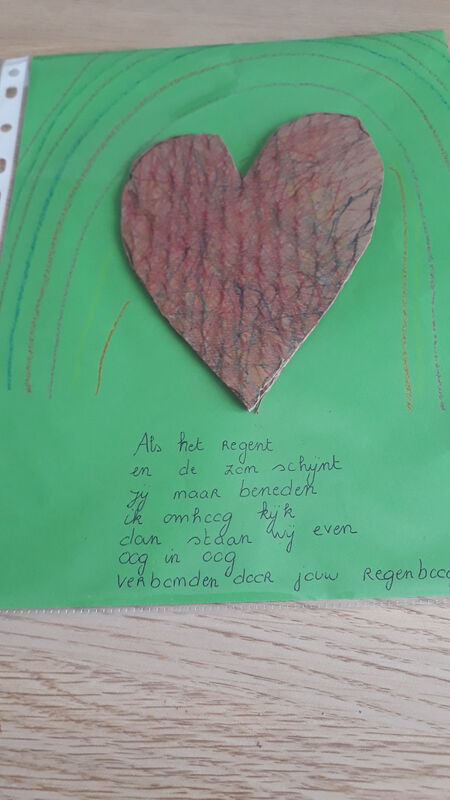 Als het regent
en de zon schijnt
jij maar beneden
ik omhoog kijk
dan staan wij even
oog in oog
verbonden door jouw regenboo